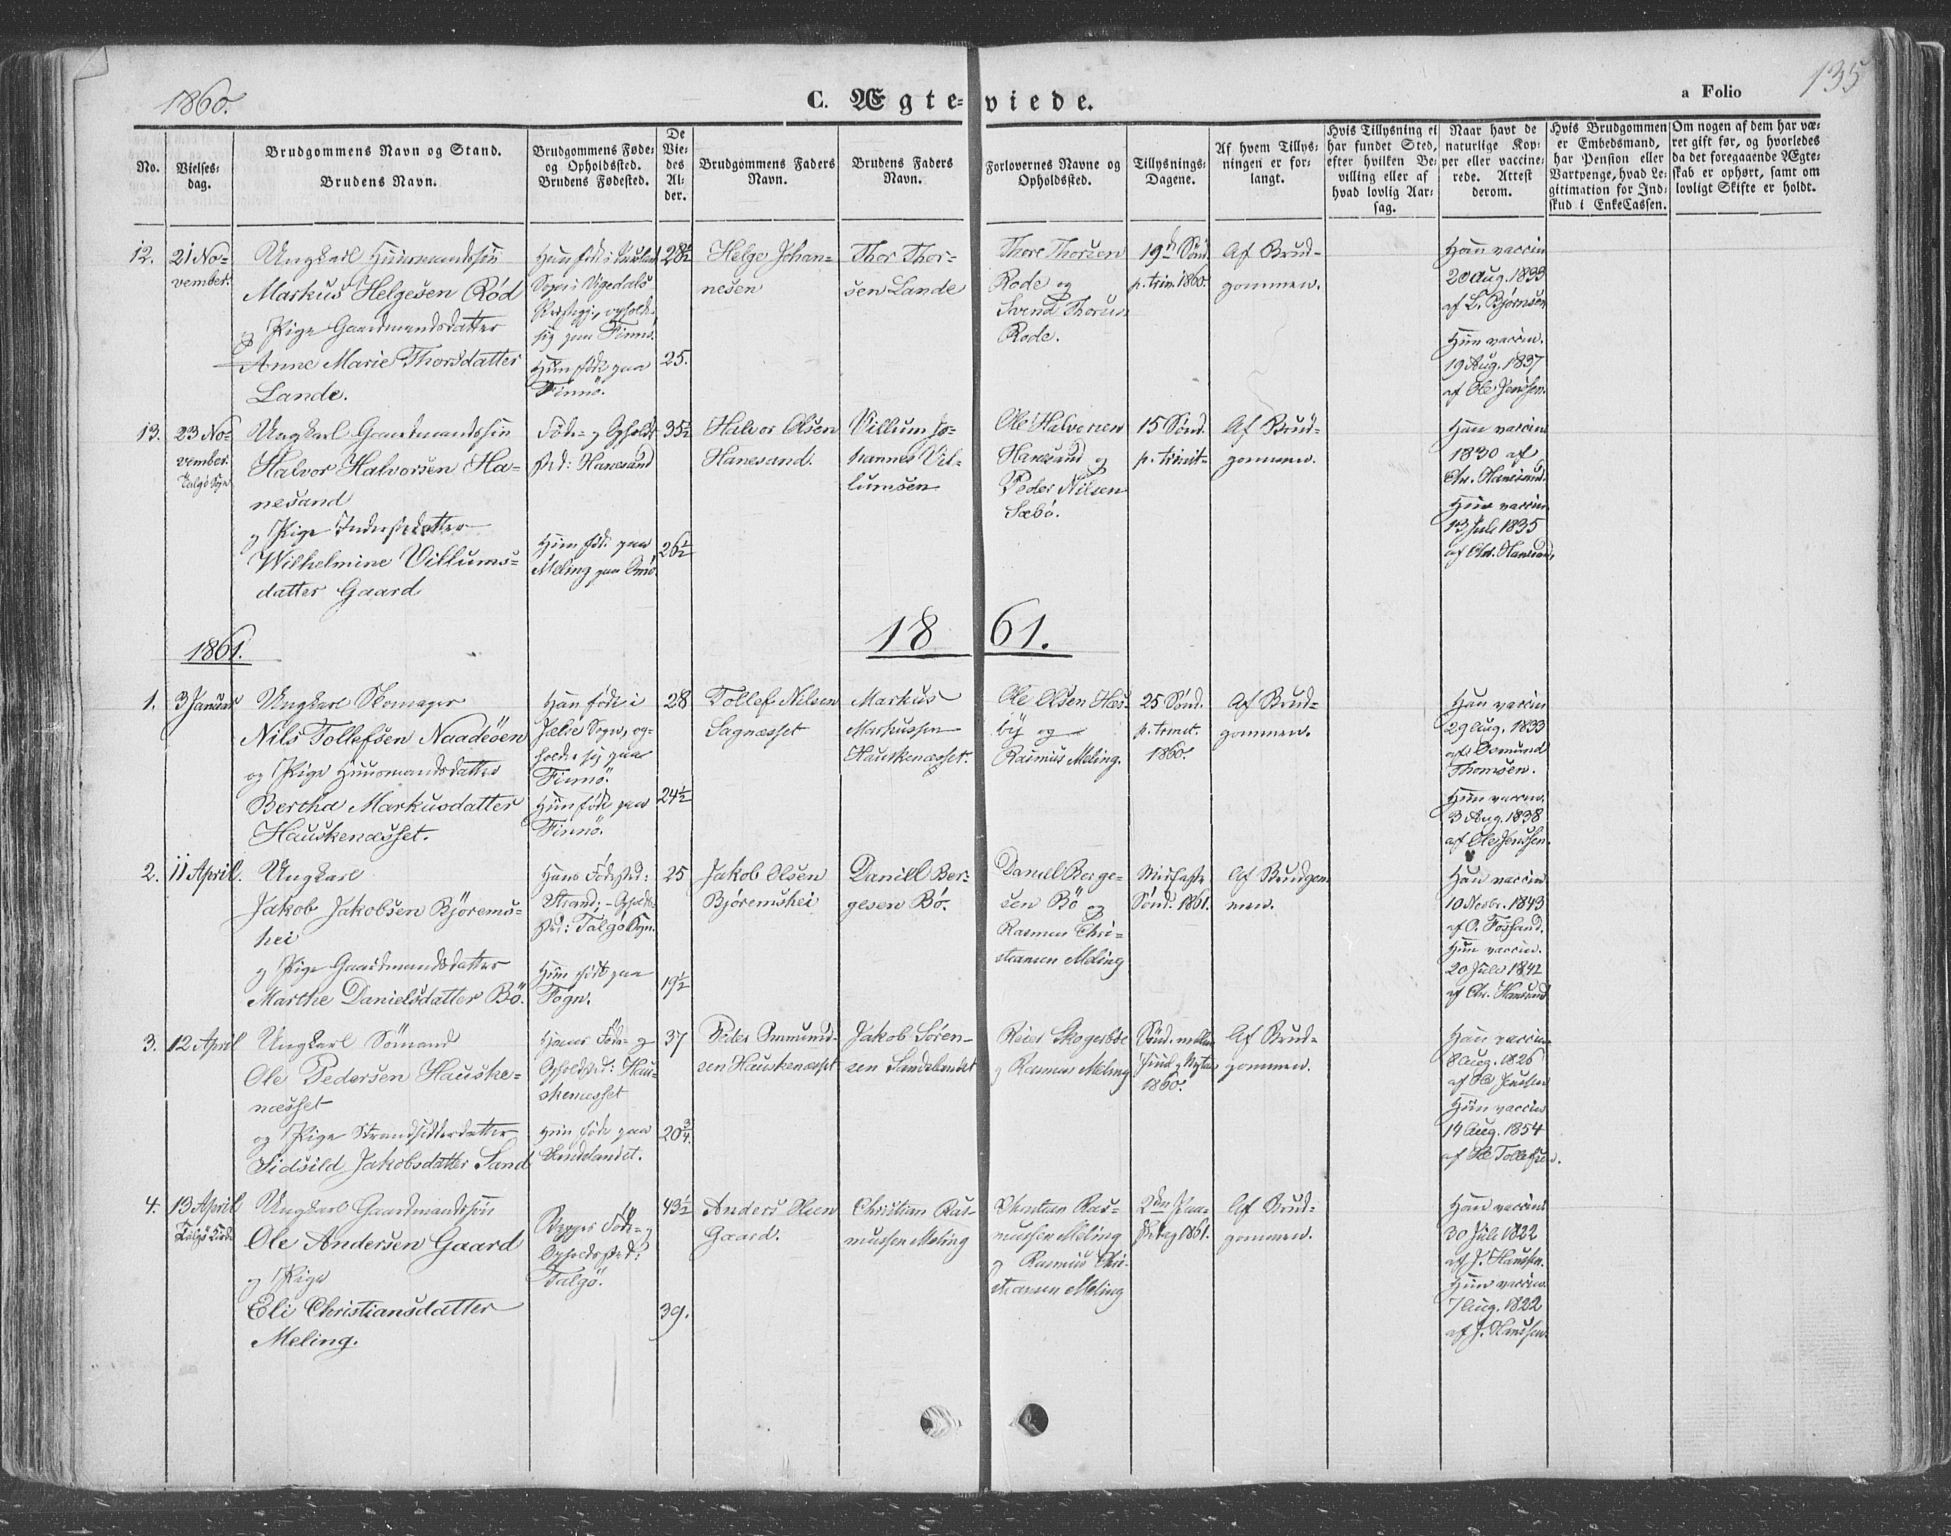 1860.
C. Ægte-viede.
a Folio
135
No.
Vielses-
dag.
Brudgommens Navn og Stand.
Brudens Navn.
Brudgommens Føde-
og Opholdssted.
Brudens Fødested.
De
Vie-
des
Al-
der.
Brudgommens Faders
Navn.
Brudens Faders
Navn.
Forlovernes Navne og
Opholdssted.
Tillysnings-
Dagene.
Af hvem Tillys-
ningen er for-
langt.
Hvis Tillysning ei
har fundet Sted,
efter hvilken Be-
villing eller af
hvad lovlig Aar-
sag.
Naar havt de
naturlige Kop-
per eller vaccine-
rede. Attest
derom.
Hvis Brudgommen
er Embedsmand,
har Pension eller
Vartpenge, hvad Le-
gitimation for Ind-
skud i EnkeCassen.
Om nogen af dem har væ-
ret gift før, og hvorledes
da det foregaaende Ægte-
skab er ophørt, samt om
lovligt Skifte er holdt.
12.
21 No-
vember.
Ungkarl Huusmandssøn
Markus Helgesen Röd
og Pige Gaardmandsdatter
Anne Marie Thorsdatter
Lande.
Han född i
Sogn i Vigedals
Præstegj., ophold.
sig paa Finnö.
Hun född paa
Finnö.
28½
25.
Helge Johan-
nesen
Thor Thor-
sen Lande
Thore Thorsen
Rode og
Svend Thorsen
Rode.
19de Sönd.
p. trin. 1860.
Af Brud-
gommen.
Han vaccin.
20 Aug. 1833
af L. Bjørnsen
Hun vaccin.
19 Aug. 1837
af Ole Jenssen.
13.
23 No-
vember.
Talgö Sogn
Ungkarl Gaardmandssøn
Halvor Halvorsen Ha-
nesand
og Pige Inderstedatter
Wilhelmine Villums-
datter Gaard
Föde- og Opholds-
sted: Hanesand
Hun föd. paa
Meling paa Omö.
35½
26½
Halvor Olsen
Hanesand.
Villum Jo-
hannes Vil-
lumsen
Ole Halvorsen
Hanesand og
Peder Nilsen
Sæbö.
15 Sönd.
p. trinit.
Af Brud-
gommen.
Han vaccin.
1830 af
Chr. Hanesand.
Hun vaccin.
13 Juli 1835
af Chr. Hanesand.
1861.
1861.
1.
3 Januar
Ungkarl Skomager
Nils Tollefsen Naadeöen
og Pige Huusmandsdatter
Bertha Markusdatter
Hauskenæsset.
Han född i
Jælse Sogn, op-
holder sig paa
Finnö.
Hun född paa
Finnö.
28
24½
Tollef Nilsen
Sagnæsset
Markus
Markussen
Hauskenæsset.
Ole Olsen Hæs-
by og
Rasmus Meling.
25 Sönd.
p. trinit.
1860.
Af Brud-
gommen.
Han vaccin
29 Aug. 1833
af Osmund
Thomsen.
Hun vaccin.
3 Aug. 1838
af Ole Jenssen.
2.
11 April.
Ungkarl
Jakob Jakobsen Björems-
hei
og Pige Gaardmandsdatter
Marthe Danielsdatter Bö.
Hans Födested:
Strand; Ophold-
sted: Talgö Sogn.
Hun född paa
Fogn.
25
19½
Jakob Olsen
Björemshei
Daniel Ber-
gesen Bö.
Daniel Berge-
sen Bö og
Rasmus Chri-
stiansen Meling
Midfaste
Sönd. 1861.
Af Brudgom-
men.
Han vaccin
10 Novbr. 1843
af O. Fossand.
Hun vaccin.
20 Juli 1842
af Chr. Hanesand
3.
12 April
Ungkarl Sömand
Ole Pedersen Hauske-
næsset
og Pige Strandsidderdatter
Sidsild Jakobsdatter Sand
Hans Föde- og
Opholdsted: Hau-
skenæsset
Hun född paa
Sandelandet.
37
20¾.
Peder Ommund-
sen Hauskenæsset
Jakob Sören-
sen Sandelandet
Reier Skogerbö
og Rasmus Meling
Sönd. mellem
Juul og Nytaar
1860.
Af Brud-
gommen.
Han vaccin.
8 Aug. 1826
af Ole Jenssen
Hun vaccin
14 Aug. 1854
af Ole Tollefsen.
4.
13 April
Talgö Kirke
Ungkarl Gaardmandssøn
Ole Andersen Gaard
og Pige
Eli Christiansdatter
Meling.
Begges Föde- og
Opholdsted:
Talgö.
43½
39.
Anders Olsen
Gaard.
Christian Ras-
mussen Meling
Christian Ras-
mussen Meling
og Rasmus Chri-
stiansen Meling
2den Paa-
skedag 1861.
Af Brud-
gommen.
Han vaccin.
30 Juli 1822
af J. Hanssen.
Hun vaccin.
7 Aug. 1822
af J. Hanssen.